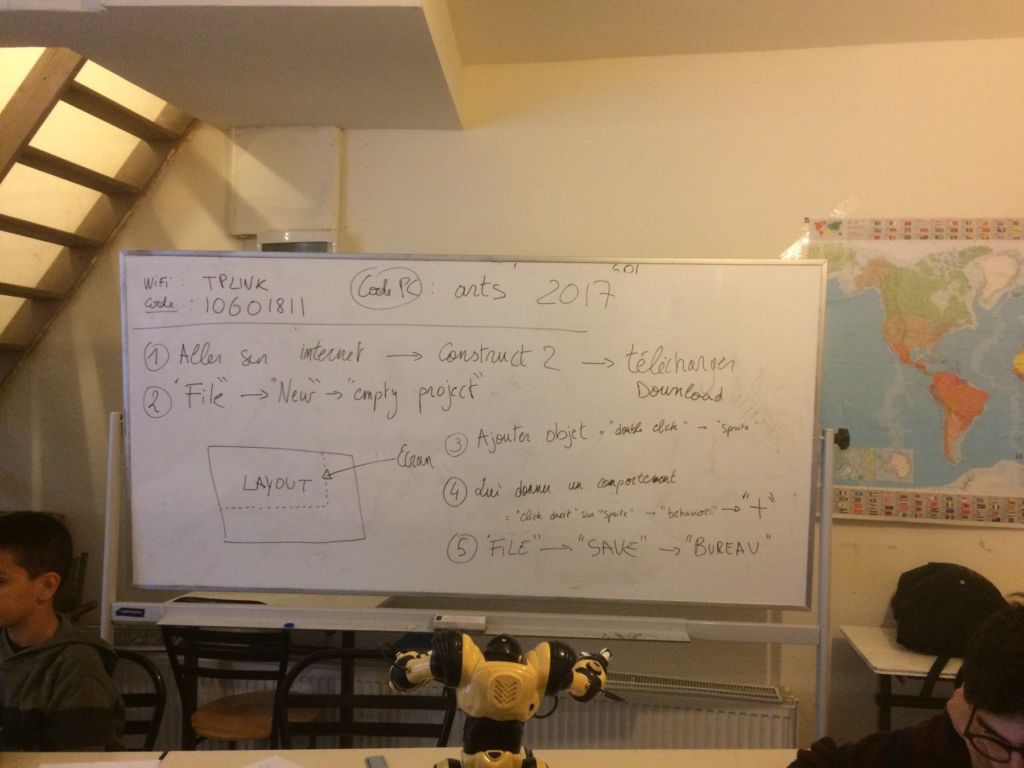 WiFi : TPLINK
Code PC : arts 2017
Code : 10601811
① Aller sur internet → Construct 2 → télécharger
Download
② "File" → "New" → "empty project"
③ Ajouter objet = "double click" → "Sprite"
Ecran
LAYOUT
④ Lui donner un comportement
= "click droit" sur "sprite" → "behaviors" → "+"
⑤ "FILE" → "SAVE" → "BUREAU"